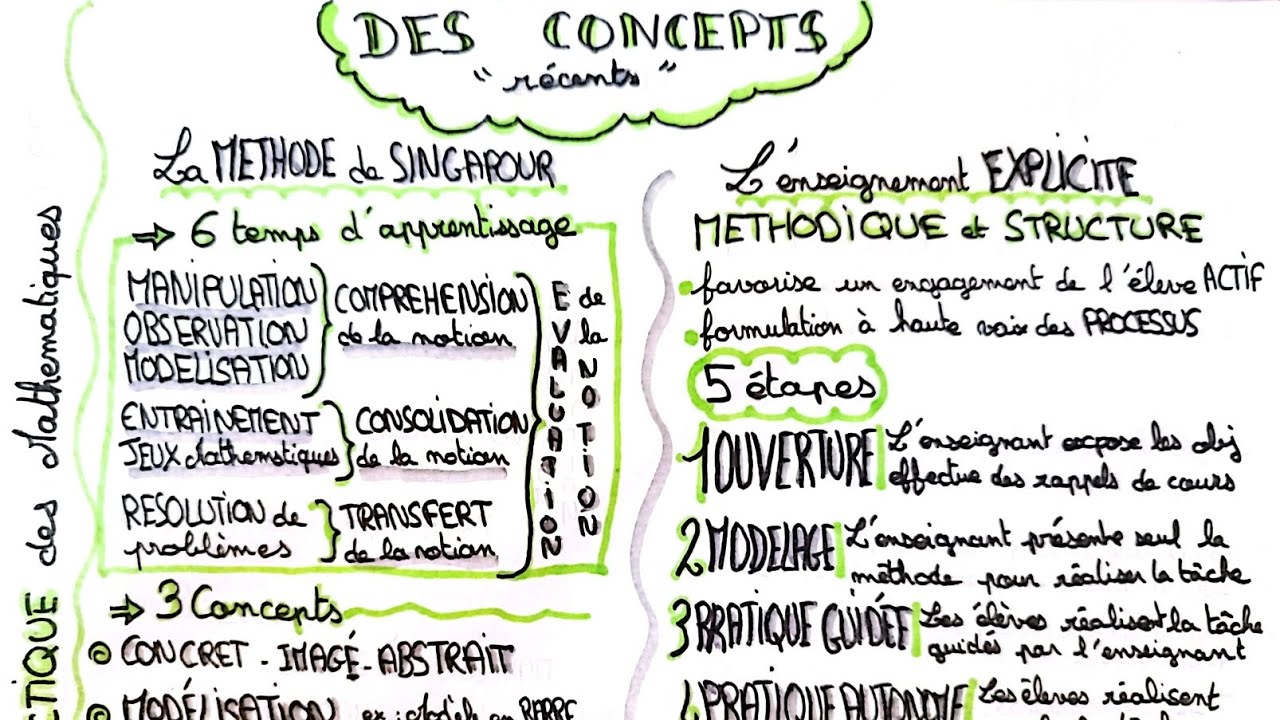 DES CONCEPTS
"récents"
La METHODE de SINGAPOUR
⇒ 6 temps d'apprentissage
MANIPULATION
OBSERVATION
MODELISATION
COMPREHENSION
de la notion
ENTRAINEMENT
JEUX Mathématiques
CONSOLIDATION
de la notion
RESOLUTION de
problèmes
TRANSFERT
de la notion
EVALUATION
de la NOTION
⇒ 3 Concepts
CONCRET - IMAGÉ - ABSTRAIT
MODÉLISATION ex : Modèle en BARRE
L'enseignement EXPLICITE
METHODIQUE et STRUCTURE
• favorise un engagement de l'élève ACTIF
• formulation à haute voix des PROCESSUS
5 étapes
1 OUVERTURE L'enseignant expose les obj
effectue des rappels de cours
2 MODELAGE L'enseignant présente seul la
méthode pour réaliser la tâche
3 PRATIQUE GUIDÉE Les élèves réalisent la tâche
guidés par l'enseignant
4 PRATIQUE AUTONOME Les élèves réalisent
CTIQUE des Mathématiques